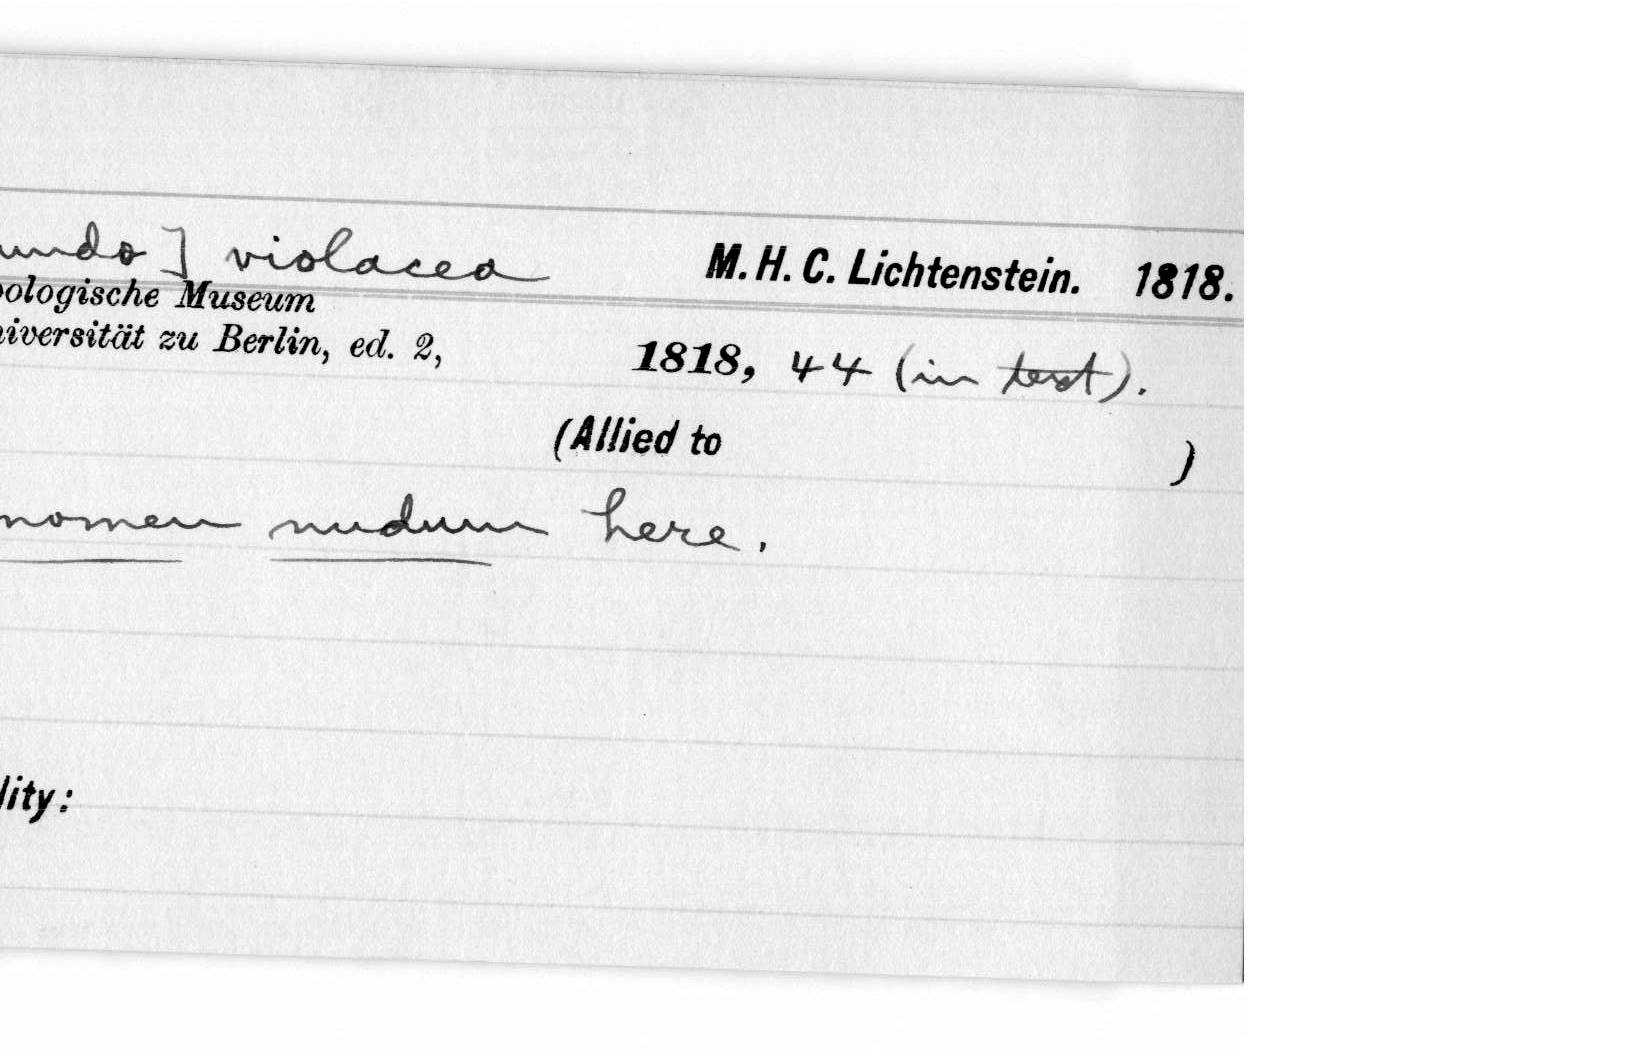 undo] violacea M. H. C. Lichtenstein. 1818.
ologische Museum
iversität zu Berlin, ed. 2, 1818, 44 (in text).
(Allied to )
nomen nudum here.
lity: